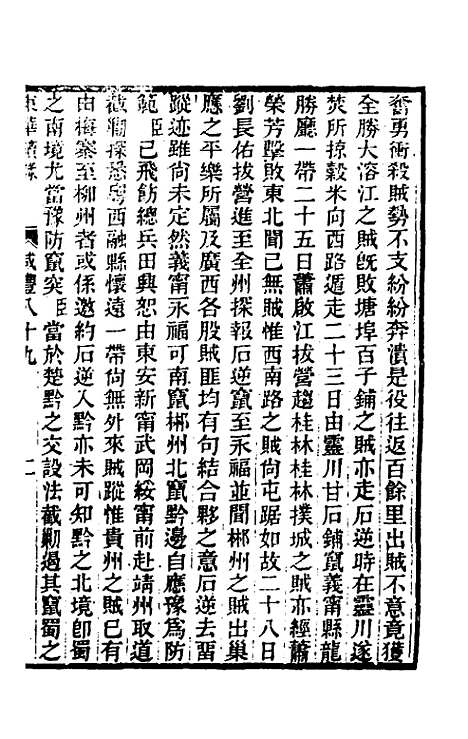 奮勇衝殺賊勢不支紛紛奔潰是役往返百餘里出賊不意竟獲
全勝大溶江之賊旣敗塘埠百子鋪之賊亦走石逆時在靈川遂
焚所掠穀米向西路遁走二十三日由靈川甘石鋪竄義甯縣龍
勝廳一帶二十五日蕭啟江拔營趨桂林桂林撲城之賊亦經蕭
榮芳擊敗東北聞已無賊惟西南路之賊尙屯踞如故二十八日
劉長佑拔營進至全州探報石逆竄至永福並聞郴州之賊出巢
應之平樂所屬及廣西各股賊匪均有句結合夥之意石逆去畱
蹤迹雖尙未定然義甯永福可南竄郴州北竄黔邊自應豫爲防
範臣已飛飭總兵田興恕由東安新甯武岡綏甯前赴靖州取道
截勦探悉粤西融縣懷遠一帶尙無外來賊蹤惟貴州之賊已有
由梅寨至柳州者或係邀約石逆入黔亦未可知黔之北境卽蜀
之南境尤當豫防竄突臣當於楚黔之交設法截勦遏其竄蜀之
東華續錄 咸豐八十九 二